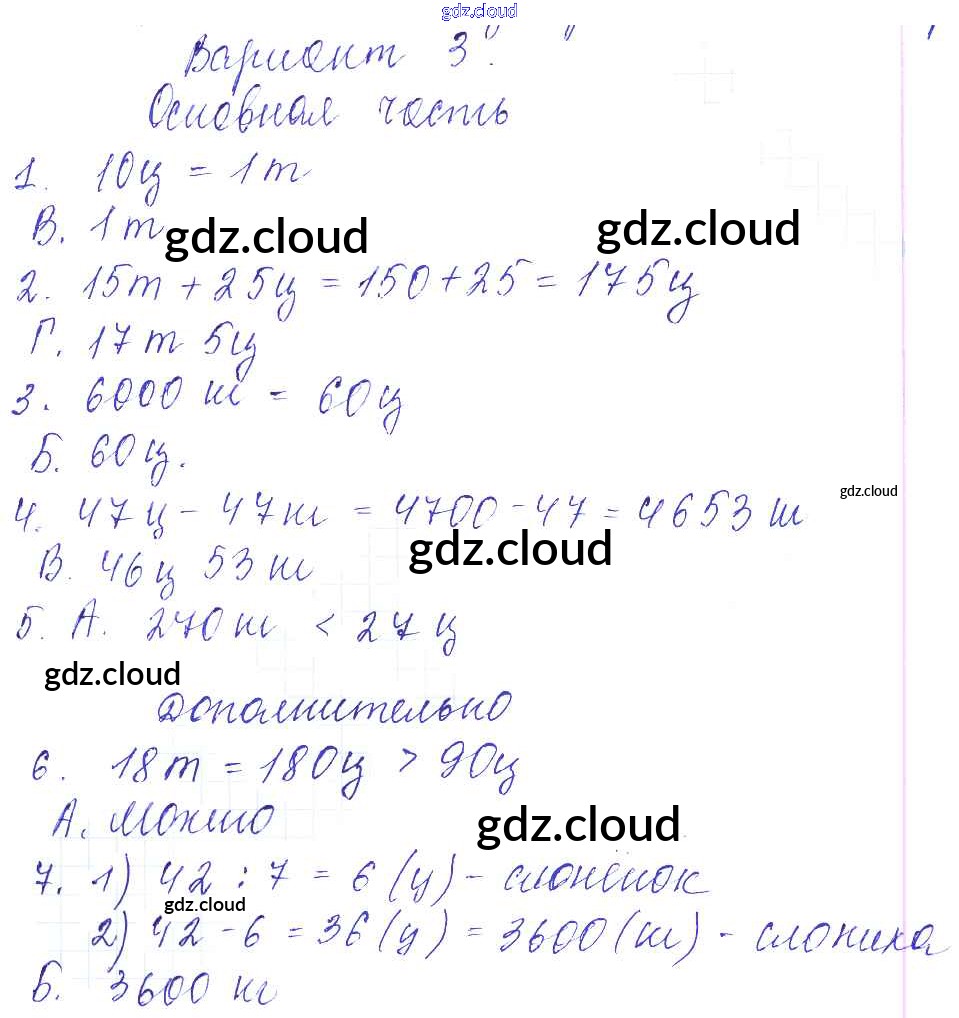 gdz.cloud
Вариант 3.
Основная часть
1. 10ц = 1т
В. 1т
gdz.cloud gdz.cloud
2. 15т + 25ц = 150 + 25 = 175ц
Г. 17т 5ц
3. 6000 кг = 60ц
Б. 60ц.
gdz.cloud
4. 47ц - 47кг = 4700 - 47 = 4653 кг
gdz.cloud
В. 46ц 53 кг
5. А. 270кг < 27ц
gdz.cloud
Дополнительно
6. 18т = 180ц > 90ц
А. Можно
gdz.cloud
7. 1) 42 : 7 = 6 (ц) - слонёнок
gdz.cloud
2) 42 - 6 = 36 (ц) = 3600 (кг) - слониха
Б. 3600 кг